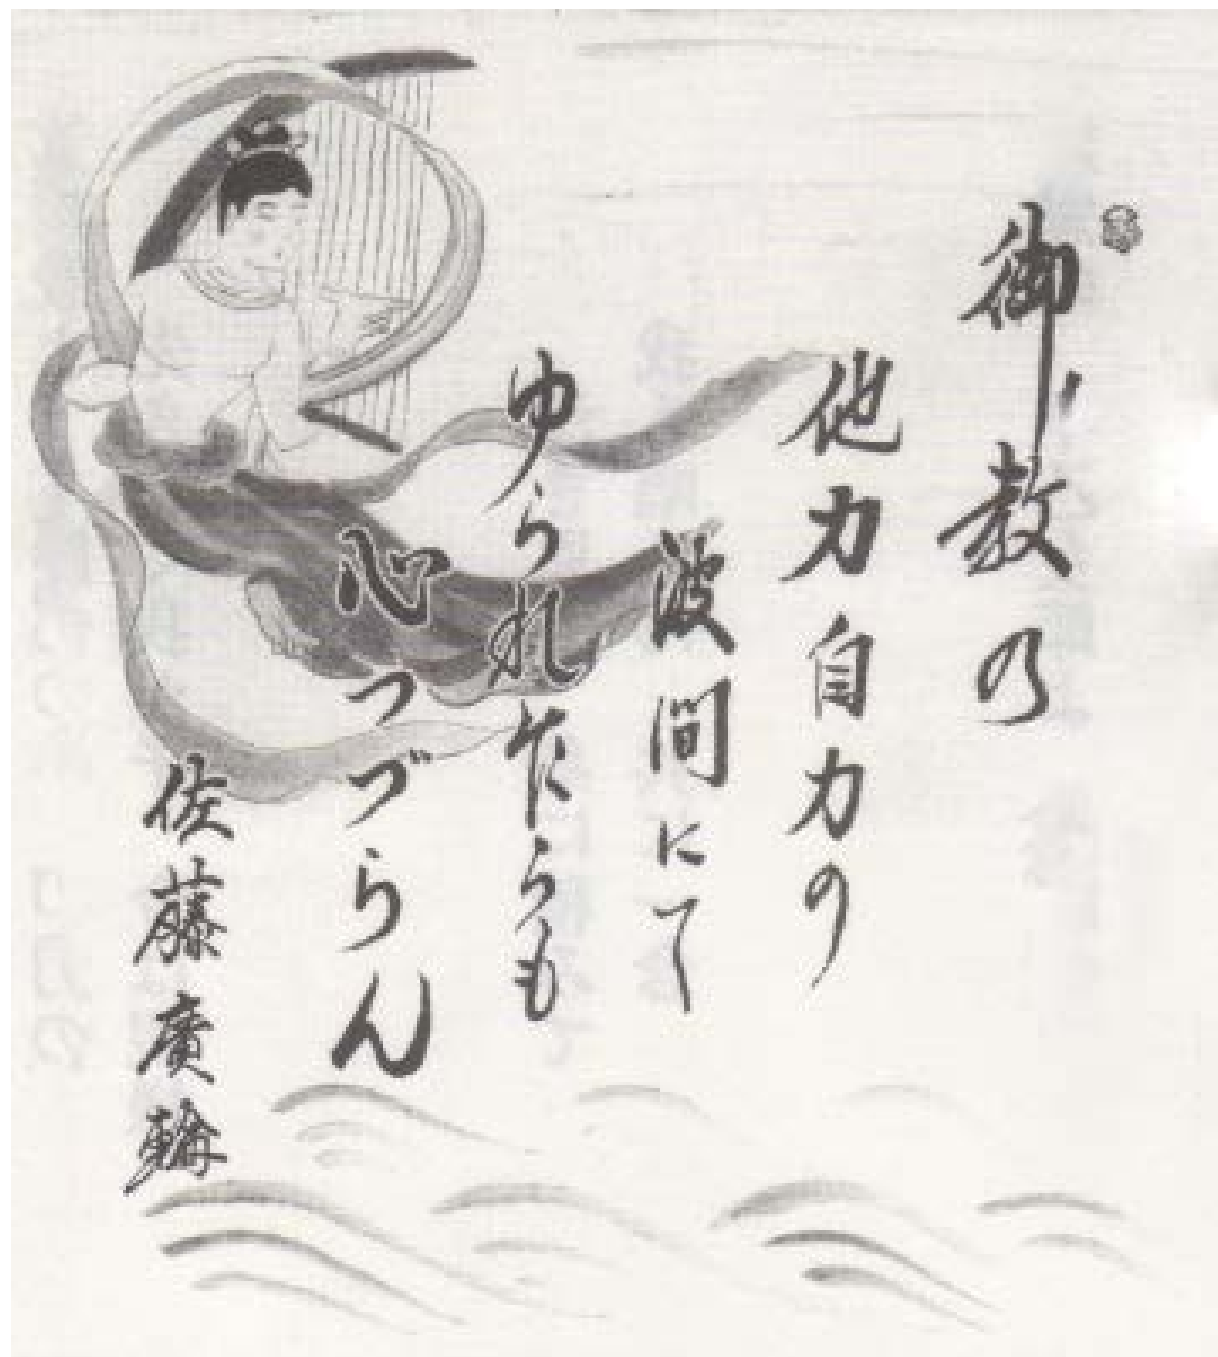 御教の
他力自力の
波間にて
ゆられ乍らも
心つづらん
佐藤廣輪